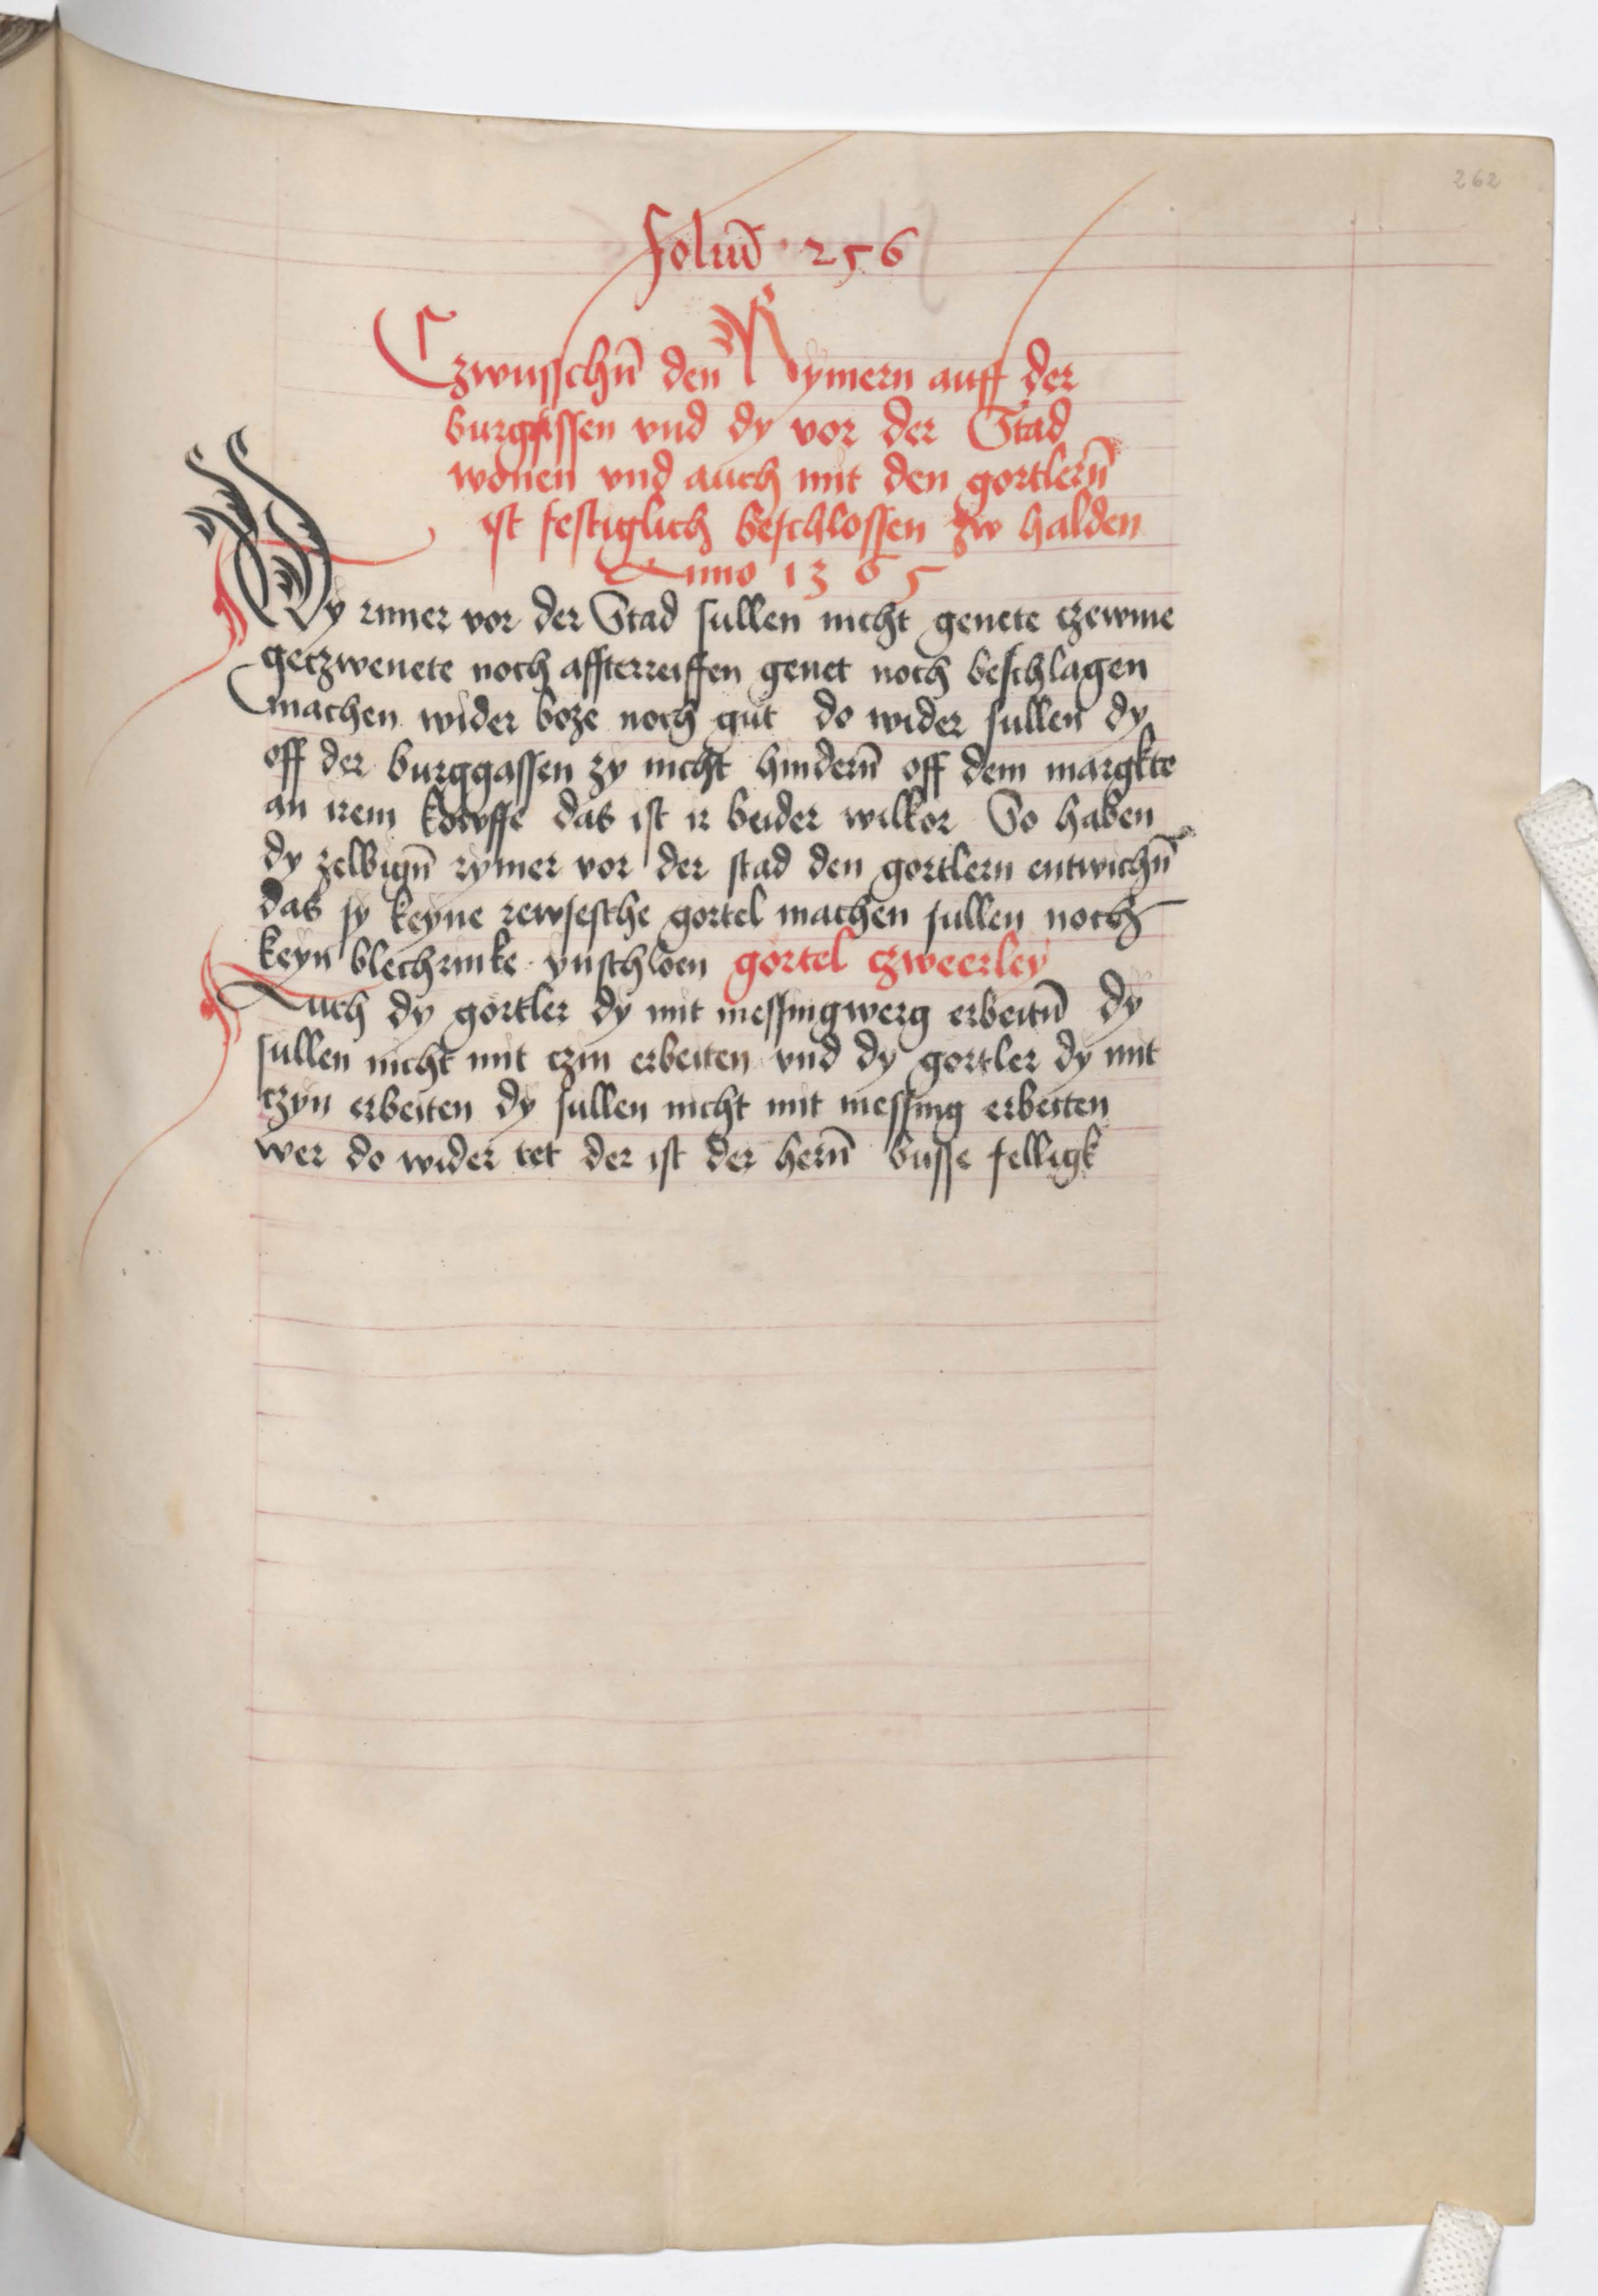 262
Foliu̅ · 256
Czwusschn̅ den Rymern auff der
burggassen vnd dy vor der Stad
wonen vnd auch mit den gortlern̅
ist festiglich beschlossen zw halden
Anno 1365
Dy rimer vor der Stad sullen nicht genete czewme
getzwenete noch affterreiffen genet noch beschlagen
machen wider boze noch gut do wider sullen dy
off der burggassen zy nicht hindern̅ off dem margkte
an irem kowffe das ist ir beider wilkor So haben
dy zelbign̅ rymer vor der stad den gortlern entwichn̅
das sy keyne rewsesche gortel machen sullen noch
keyn blechrinke vnschloen gortel czweerley
Auch dy gortler dy mit messingwerg erbeitn̅ dy
sullen nicht mit czin erbeiten vnd dy gortler dy mit
czyn erbeiten dy sullen nicht mit messing erbeiten
wer do wider tet der ist der hern̅ busse felligk